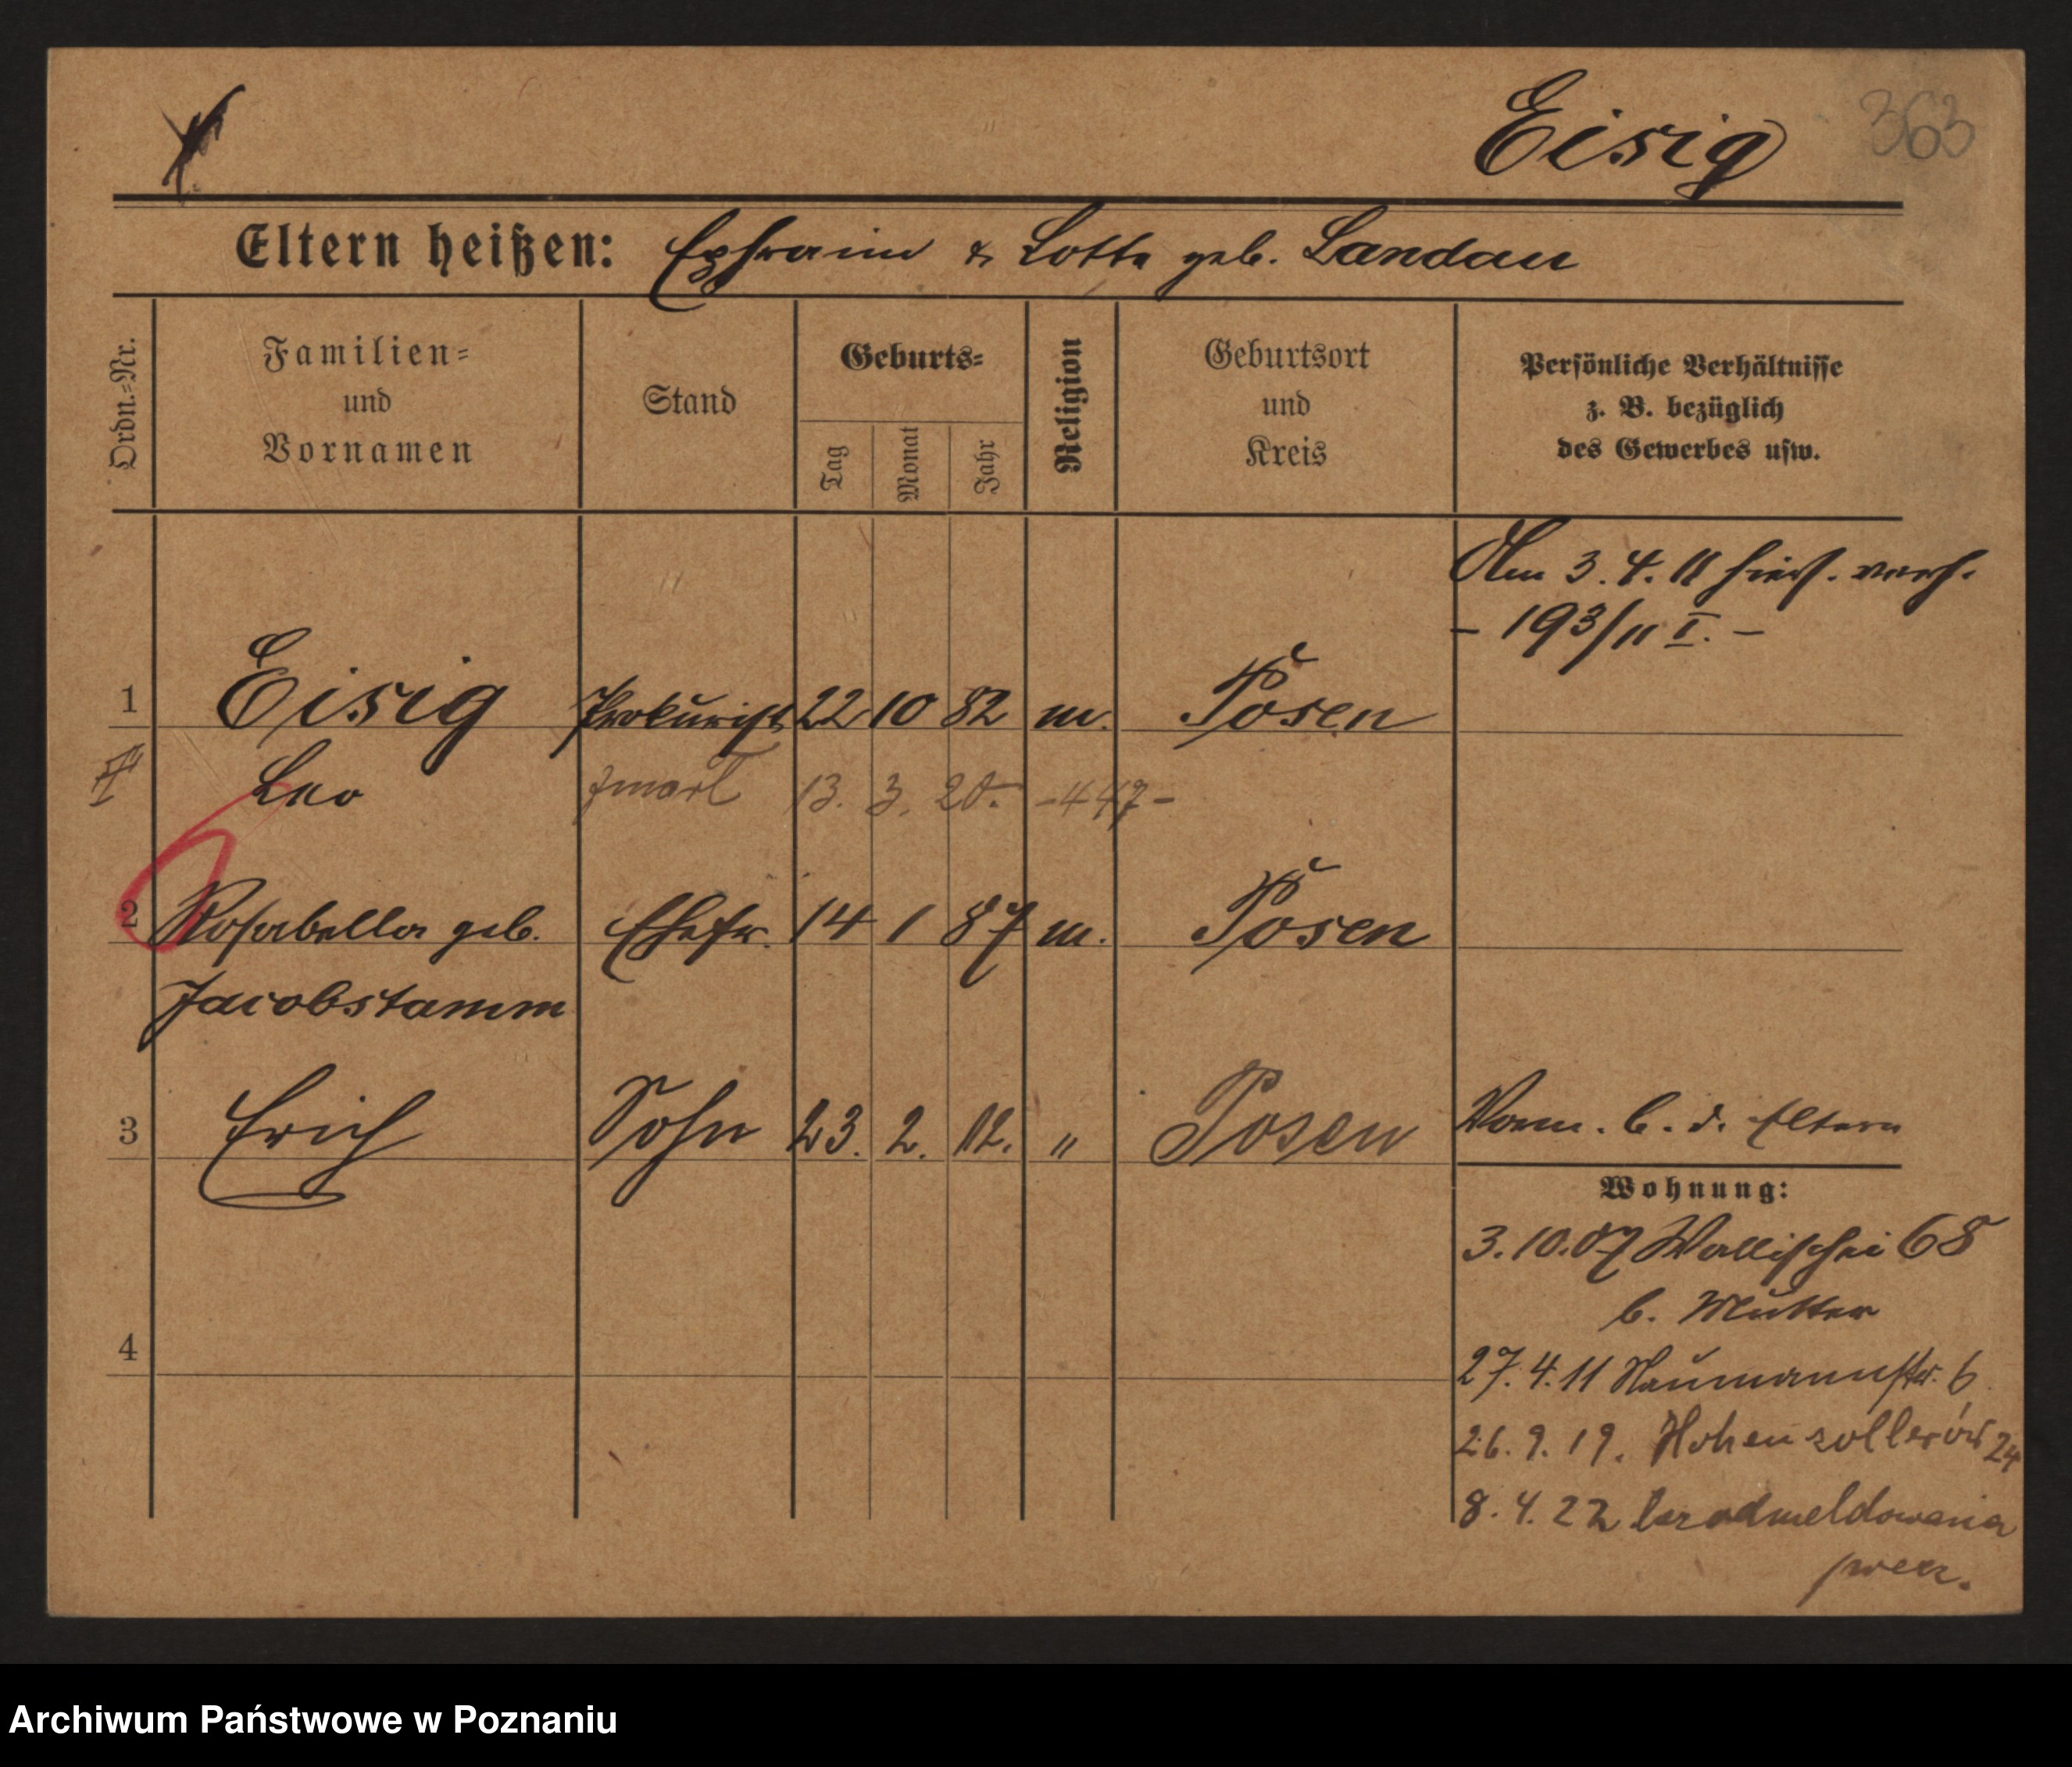 Eisig 363
Eltern heißen: Ephraim & Lotte geb. Landau
Ordn.-Nr.
Familien-
und
Vornamen
Stand
Geburts-
Tag
Monat
Jahr
Religion
Geburtsort
und
Kreis
Persönliche Verhältnisse
z. B. bezüglich
des Gewerbes usw.
Am 3.4.11 hies. verh.
- 193/11 I. -
1 Eisig Prokurist 22 10 82 m. Posen
Leo zmarł 13. 3. 20. -447-
2 Rosabella geb. Ehefr. 14 1 87 m. Posen
Jacobstamm
3 Erich Sohn 23. 2. 12. " Posen Vorm. b. d. Eltern
Wohnung:
3.10.07 Wallischei 68
b. Mutter
4
27.4.11 Naumannstr. 6
26.9.19. Hohenzollernów 24
8.4.22 bez odmeldowania
Archiwum Państwowe w Poznaniu